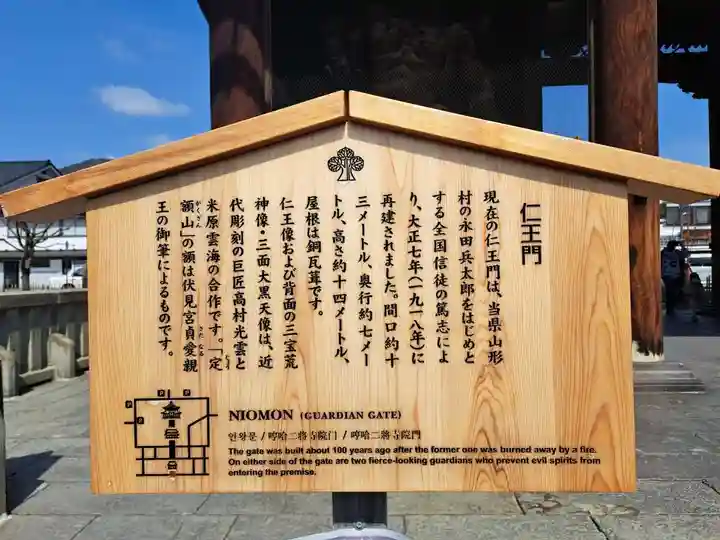 仁王門
現在の仁王門は、当県山形
村の永田兵太郎をはじめと
する全国信徒の篤志によ
り、大正七年(一九一八年)に
再建されました。間口約十
三メートル、奥行約七メー
トル、高さ約十四メートル、
屋根は銅瓦葺です。
仁王像および背面の三宝荒
神像・三面大黒天像は、近
代彫刻の巨匠高村光雲と
米原雲海の合作です。「定
額山」の額は伏見宮貞愛親
王の御筆によるものです。
NIOMON (GUARDIAN GATE)
인왕문 / 哼哈二將寺院门 / 哼哈二將寺院門
The gate was built about 100 years ago after the former one was burned away by a fire.
On either side of the gate are two fierce-looking guardians who prevent evil spirits from
entering the premise.